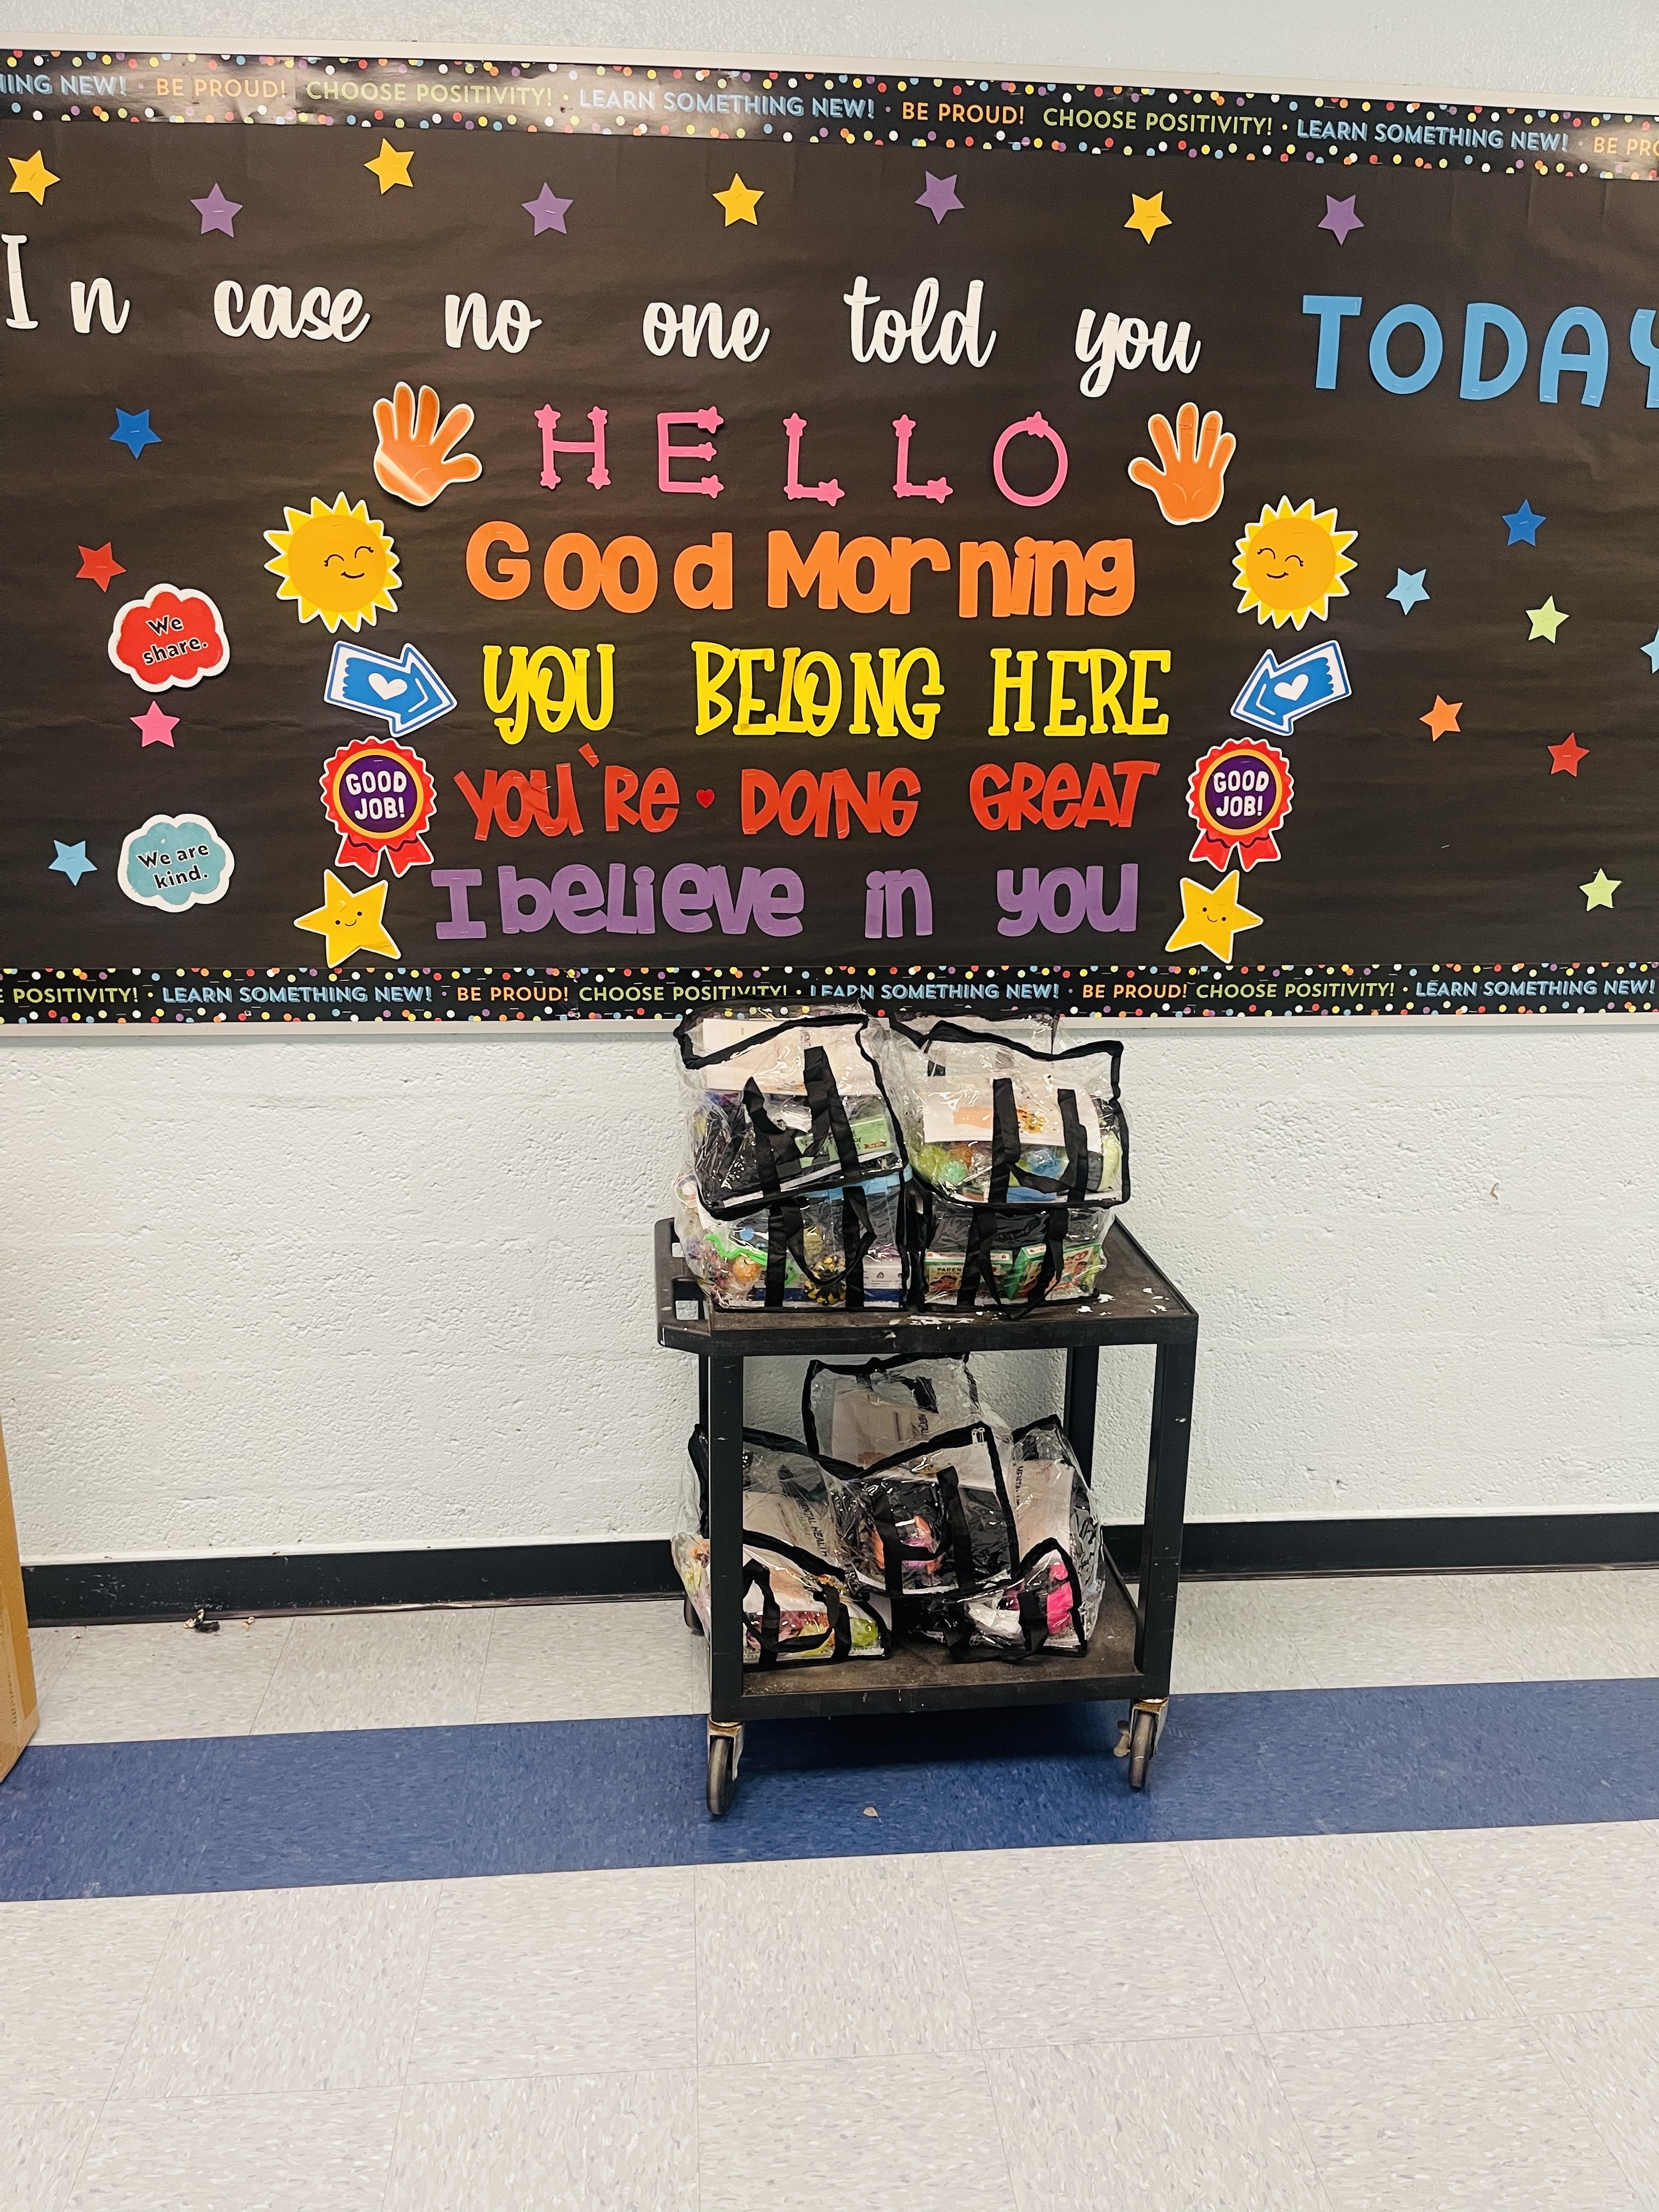 NING NEW! · BE PROUD! CHOOSE POSITIVITY! · LEARN SOMETHING NEW! · BE PROUD! CHOOSE POSITIVITY! · LEARN SOMETHING NEW! · BE PRO
In case no one told you TODAY
HELLO
Good Morning
YOU BELONG HERE
We
share.
GOOD
JOB!
YOU'RE DOING GREAT
GOOD
JOB!
We are
kind.
I believe in you
E POSITIVITY! · LEARN SOMETHING NEW! · BE PROUD! CHOOSE POSITIVITY! · LEARN SOMETHING NEW! · BE PROUD! CHOOSE POSITIVITY! · LEARN SOMETHING NEW!